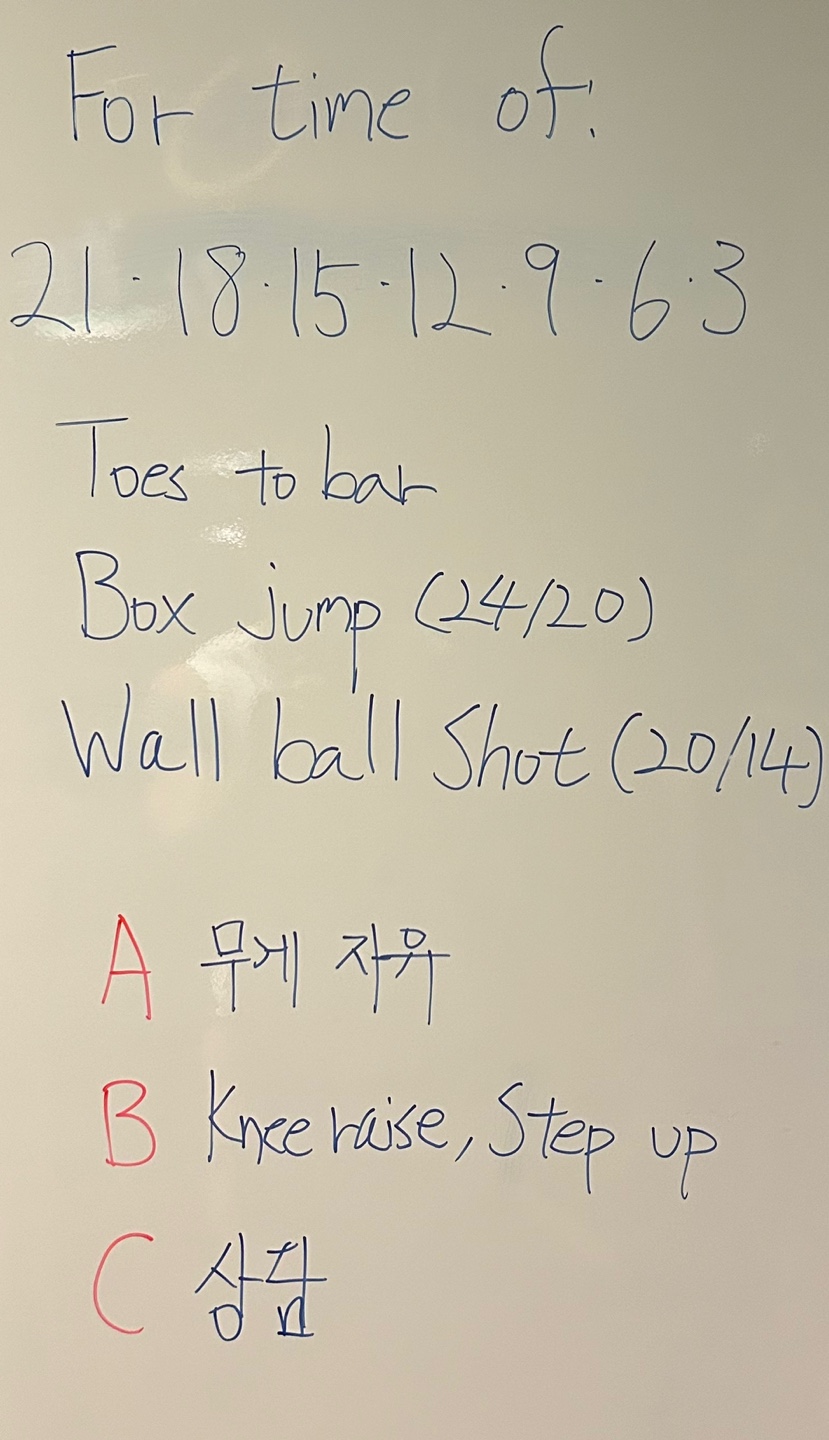 For time of:
21·18·15·12·9·6·3
Toes to bar
Box jump (24/20)
Wall ball Shot (20/14)
A 무게 자유
B Knee raise, Step up
C 상담